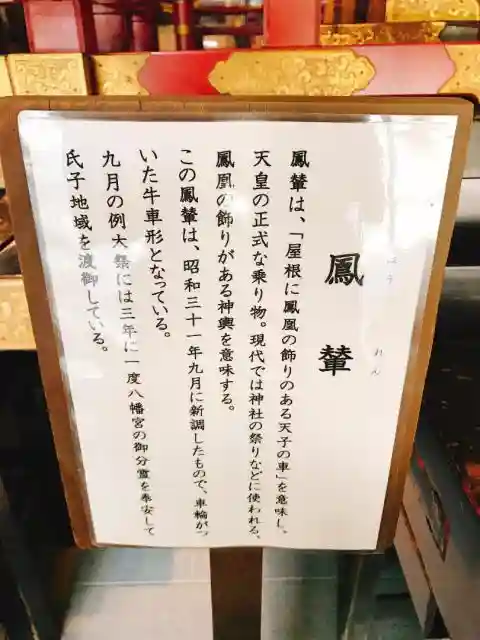 鳳輦
ほう
れん
鳳輦は、「屋根に鳳凰の飾りのある天子の車」を意味し、
天皇の正式な乗り物。現代では神社の祭りなどに使われる、
鳳凰の飾りがある神輿を意味する。
この鳳輦は、昭和三十一年九月に新調したもので、車輪がつ
いた牛車形となっている。
九月の例大祭には三年に一度八幡宮の御分霊を奉安して
氏子地域を渡御している。